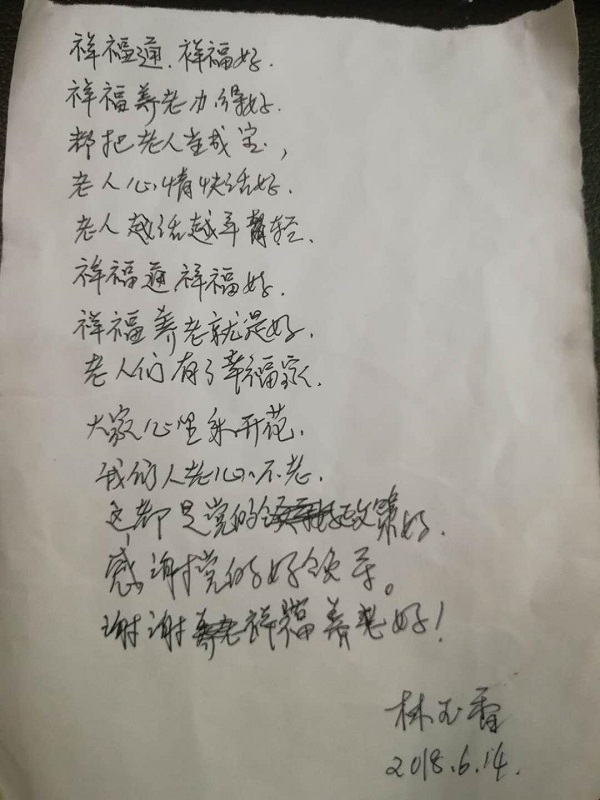 祥福通.祥福好.
祥福养老办得好.
都把老人当成宝,
老人心情快活好.
老人越活越年轻.
祥福通祥福好.
祥福养老就是好.
老人们有了幸福家.
大家心里乐开花.
我们人老心不老.
这都是党的政策好.
感谢党的好领导。
谢谢祥福养老好!
林玉香
2018.6.14.